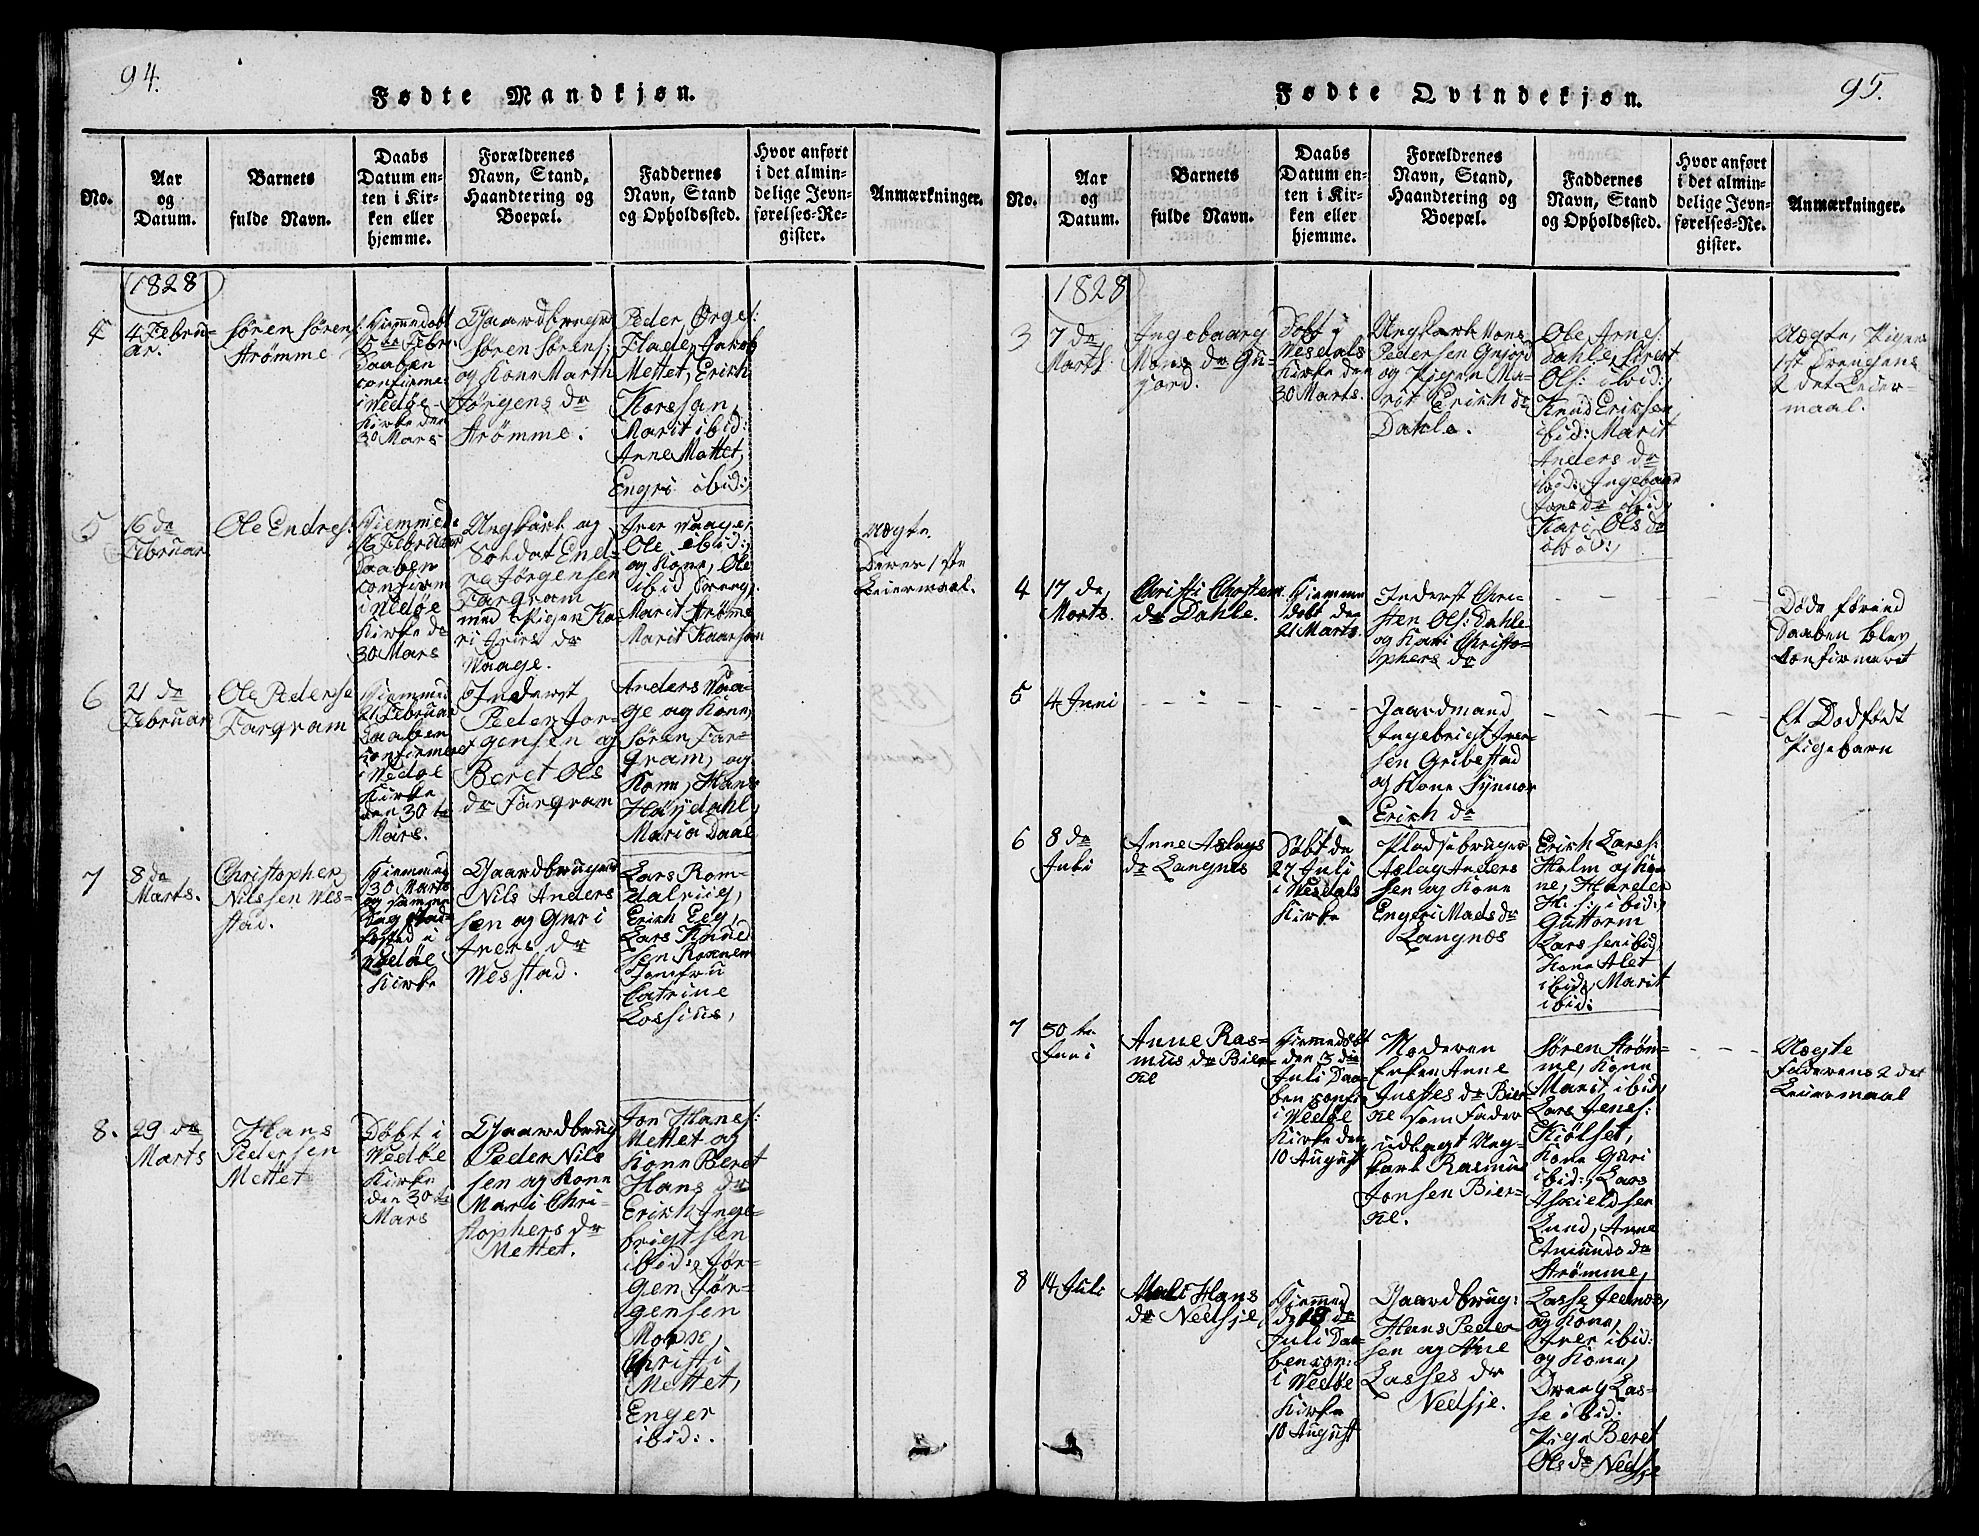 94.
Fødte Mandkjøn.
No.
Aar
og
Datum.
Barnets
fulde Navn.
Daabs
Datum en-
ten i Kir-
ken eller
hjemme.
Forældrenes
Navn, Stand,
Haandtering og
Boepæl.
Faddernes
Navn, Stand
og Opholdssted.
Hvor anført
i det almin-
delige Jevn-
førelses-Re-
gister.
Anmærkninger.
1828
4
4 Febru-
ar.
Søren Sørens:
Strømme
Hiemmedøbt
5te Febr.
Daaben
confirme:
i Vedøe
Kirke den
30 Mars
Gaardbruger
Søren Sørens:
og Kone Marth
Jørgens dr
Strømme.
Peder Ørges:
Flade, Jakob
Mettet, Erich
Korsgan,
Marit ibid:
Anne Mettet,
Engri ibid:,
5
16 de
Februar
Ole Endres:
Hiemmed:
16 Februar
Daaben
confirm
i Vedøe
Kirke d
30 Mars
Ungkarl og
Soldat End-
re Jørgensen
Fargram
med Pigen Ka
ri Ivers dr
Vaage.
Iver Vaage,
Ole ibid:,
og Kone, Ole
ibid Dreng,
Marit Strømme
Marit Kaarsgan
Uægte.
Deres 1ste
Leiermaal.
6
21 de
Februar
Ole Pederse
Fargram
Hiemmed
21 Februar
Daaben
confirmeret
i Vedøe
Kirke
den 30 te
Mars.
Inderst
Peder Jør-
gensen og
Beret Ols
dr Fargram
Anders Vaa-
ge og Kone,
Søren Far-
gram, og
Kone, Hans
Høysdahl,
Maria Daal
7
8 de
Marts.
Christopher
Nilssen Ves-
stad.
Hiemmed
30 Marts
og samme
Dag stad-
fæsted i
Vedøe
Kirke
Gaardbruger
Nils Anders
sen og Guri
Ivers dr
Vesstad.
Lars Rom-
dalviig,
Erich Eeg,
Lars Knud
sen Roxnem
Jomfru
Catrine
Lossius,
8.
29 de
Marts
Hans
Pedersen
Mettet
Døbt i
Vedøe
Kirke
den 30 te
Mars
Gaardbrug
Peder Nils
sen og Kone
Marli Chri-
stophers dr
Mettet.
Jon Hans:
Mettet og
Kone Beret
Hans dr
Erich Inge-
brigtsen
ibid: Jør-
gen Jør-
gensen
Christi
Mettet,
Enger
ibid:.
95.
Fødte Qvindekjøn.
No.
Aar
og
Datum.
Barnets
fulde Navn.
Daabs
Datum en-
ten i Kir-
ken eller
hjemme.
Forældrenes
Navn, Stand,
Haandtering og
Boepæl.
Faddernes
Navn, Stand
og Opholdssted.
Hvor anført
i det almin-
delige Jevn-
førelses-Re-
gister.
Anmærkninger.
1828
3
7 de
Marts.
Ingebaarg
Mons dr Gu-
jord.
Døbt i
Vesdals
Kirke den
30 Marts.
Ungkarl Mons
Pedersen Gujord
og Pigen Ma-
rit Erich dr
Dahle.
Ole Arnes:
Dahle, Sivert
Ols: ibid:,
Knud Eriksen
ibid: Marit
Anders dr
ibid:, Ingebaar
Jons dr ibid,
Kari Ols dr
ibid:,
Uægte, Pigen
1st Drengens
2 det Leier-
maal.
4
17 de
Morts.
Christi Chostens
dr Dahle.
Hiemme
døbt den
21 Marts
Inderst Chri-
sten Ols: Dahle
og Kari Christo-
phers dr
Døde førend
Daaben blev
Confirmerit
5
4 Juni
Gaardmand
Ingebrigt Iver-
sen Gribestad
og Kone Synnor
Erich dr
Et Dødfødt
Pigebarn
6
8 de
Juli
Anne Aslags
dr Langnes
Døbt de
27 Juli
i Vesdals
Kirke
Pladsebruger
Aslag Anders
sen og Kone
Engeri Mads dr
Langnæs
Erich Larss:
Holm og Ko-
ne,
H: S: ibid:,
Guttorm
Lars sen ibid,
Kone Alet
ibid:, Marit
ibid:
7
30 te
Juni
Anne Ras-
mus dr Bier-
ke
Hiemmedøbt
den 3 die
Juli Daa-
ben confr
i Vedøe
Kirke den
10 August
Moderen
Enken Anne
Justes dr Bier
ke som Fader
udlagt Ung-
karl Rasmus
Jonsen Bier-
ke.
Søren Strøm-
me, Kone
Marit ibid,
Lars Jenes:
Kiølset,
Kone Guri
ibid:, Lars
Askieldsen
Lund, Anne
Amunds dr
Strømme,
Uægte
Faderens 2 det
Leiermaal
8
14 Juli
Mali Hans
dr Nedsje
Hiemmed
d 18 de
Juli Daa-
ben con:
i Vedøe
Kirke
10 August
Gaardbrug:
Hans Peder-
sen og Ane
Lasses dr
Nedsje.
Lasse Jeenæs,
og Kone,
Iver ibid:
og Kone,
Dreng Las-
se ibid:
Pige Beret
Ols dr Nedsje